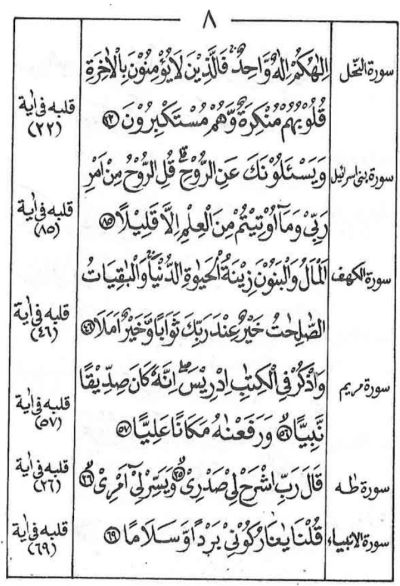 ٨
سورة النحل
اِلٰهُكُمْ اِلٰهٌ وَّاحِدٌ ۚ فَالَّذِيْنَ لَا يُؤْمِنُوْنَ بِالْاٰخِرَةِ
قُلُوْبُهُمْ مُّنْكِرَةٌ وَّهُمْ مُّسْتَكْبِرُوْنَ ﴿٢٢﴾
قلبه فى اية
(٢٢)
سورة بنى اسرائيل
وَيَسْـَٔلُوْنَكَ عَنِ الرُّوْحِ ۖ قُلِ الرُّوْحُ مِنْ اَمْرِ
رَبِّىْ وَمَآ اُوْتِيْتُمْ مِنَ الْعِلْمِ اِلَّا قَلِيْلًا ﴿٨٥﴾
قلبه فى اية
(٨٥)
سورة الكهف
اَلْمَالُ وَالْبَنُوْنَ زِيْنَةُ الْحَيٰوةِ الدُّنْيَا ۚ وَالْبٰقِيَاتُ
الصّٰلِحٰتُ خَيْرٌ عِنْدَ رَبِّكَ ثَوَابًا وَّخَيْرٌ اَمَلًا ﴿٤٦﴾
قلبه فى اية
(٤٦)
سورة مريم
وَاذْكُرْ فِى الْكِتٰبِ اِدْرِيْسَ ۖ اِنَّهٗ كَانَ صِدِّيْقًا
نَّبِيًّا ﴿٥٦﴾ وَرَفَعْنٰهُ مَكَانًا عَلِيًّا ﴿٥٧﴾
قلبه فى اية
(٥٧)
سورة طٰهٰ
قَالَ رَبِّ اشْرَحْ لِىْ صَدْرِىْ ﴿٢٥﴾ وَيَسِّرْ لِىْٓ اَمْرِىْ ﴿٢٦﴾
قلبه فى اية
(٢٦)
سورة الانبياء
قُلْنَا يٰنَارُ كُوْنِىْ بَرْدًا وَّسَلَامًا ﴿٦٩﴾
قلبه فى اية
(٦٩)